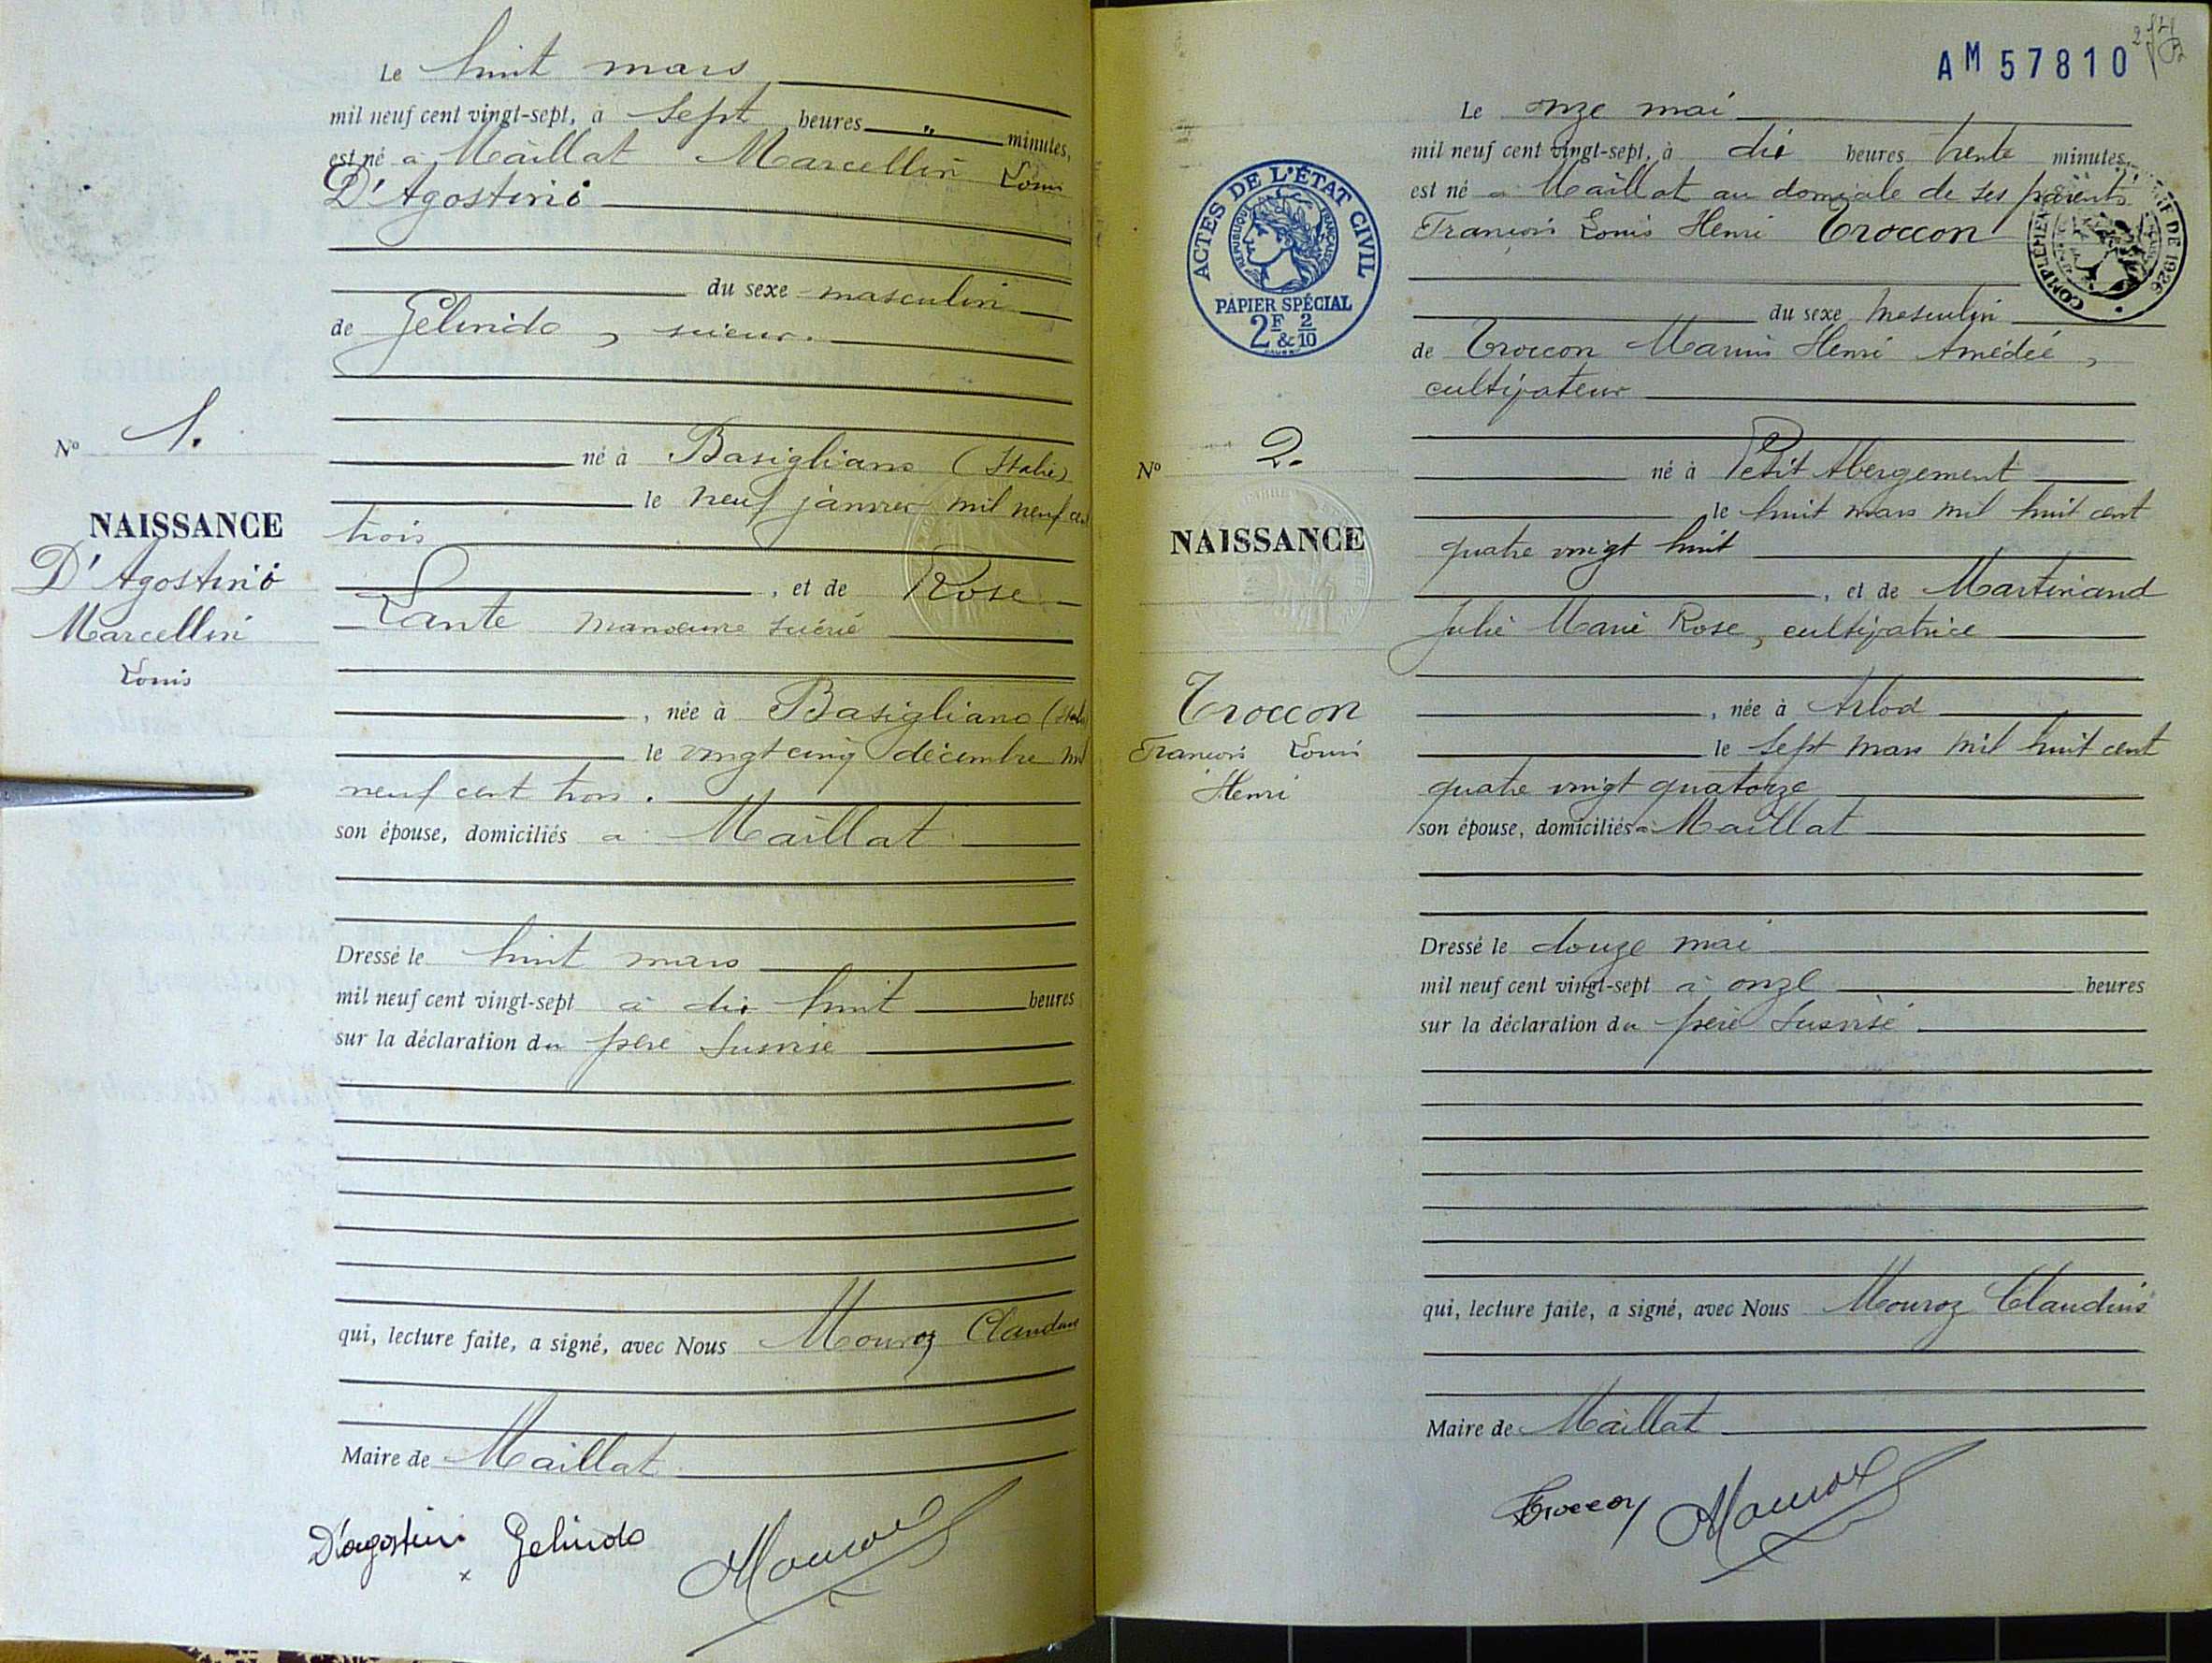 Le huit mars
mil neuf cent vingt-sept, à sept heures " minutes,
est né à Maillat Marcellin Louis
D'Agostini
du sexe masculin
de Gélindo, scieur.
né à Basigliano (Italie)
le neuf janvier mil neuf cent
trois
, et de Rose
Lante manoeuvre scierie
, née à Basigliano (Italie
le vingt cinq décembre mil
neuf cent trois.
son épouse, domiciliés à Maillat
Dressé le huit mars
mil neuf cent vingt-sept à dix huit heures
sur la déclaration du père susvisé
qui, lecture faite, a signé, avec Nous Mouroz Claudius
Maire de Maillat
D'agostini Gelindo Mouroz
No 1.
NAISSANCE
D'Agostini
Marcellin
Louis
AM 57810
Le onze mai
mil neuf cent vingt-sept, à dix heures trente minutes,
est né à Maillat au domicile de ses parents
François Louis Henri Troccon
du sexe masculin
de Troccon Marius Henri Amédée,
cultivateur
né à Petit Abergement
le huit mars mil huit cent
quatre vingt huit
, et de Martinand
Julie Marie Rose, cultivatrice
, née à Arlod
le sept mars mil huit cent
quatre vingt quatorze
son épouse, domiciliés à Maillat
Dressé le douze mai
mil neuf cent vingt-sept à onze heures
sur la déclaration du père susvisé
qui, lecture faite, a signé, avec Nous Mouroz Claudius
Maire de Maillat
Troccon Mouroz
ACTES DE L'ÉTAT CIVIL
RÉPUBLIQUE FRANÇAISE
PAPIER SPÉCIAL
2F & 2/10
No 2.
NAISSANCE
Troccon
François Louis
Henri